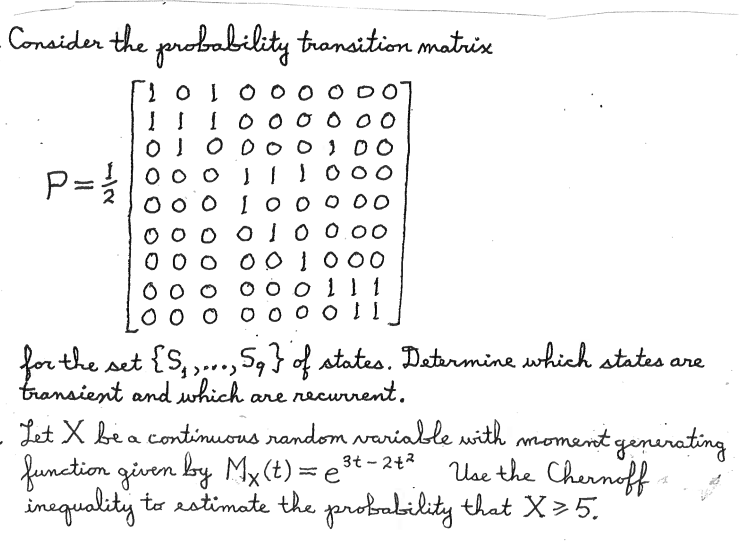 Consider the probability transition matrix
1 0 1 0 0 0 0 0 0
1 1 1 0 0 0 0 0 0
0 1 0 0 0 0 1 0 0
P = 1/2 0 0 0 1 1 1 0 0 0
0 0 0 1 0 0 0 0 0
0 0 0 0 1 0 0 0 0
0 0 0 0 0 1 0 0 0
0 0 0 0 0 0 1 1 1
0 0 0 0 0 0 0 1 1
for the set {S₁,...,S₉} of states. Determine which states are
transient and which are recurrent.
Let X be a continuous random variable with moment generating
function given by Mₓ(t) = e^{3t-2t²} Use the Chernoff
inequality to estimate the probability that X ≥ 5.